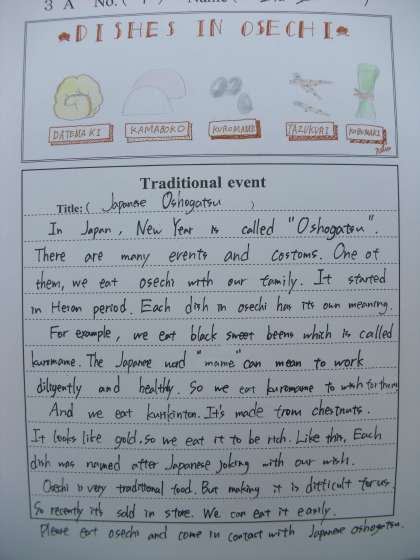 3 A No. ( ) Name (
DISHES IN OSECHI
DATEMAKI KAMABOKO KUROMAME TAZUKURI KOBUMAKI
Traditional event
Title: ( Japanese Oshogatsu )
In Japan, New Year is called "Oshogatsu".
There are many events and costoms. One of
them, we eat osechi with our family. It started
in Heian period. Each dish in osechi has its own meaning.
For example, we eat black sweet beens which is called
kuromame. The Japanese word "mame" can mean to work
diligently and healthly. So we eat kuromame to wish for them.
And we eat kurikinton. It's made from chestnuts.
It looks like gold, so we eat it to be rich. Like this, Each
dish was named after Japanese joking with our wish.
Osechi is very traditional food. But making it is difficult for us.
So recently it's sold in store. We can eat it easily.
Please eat osechi and come in contact with Japanese oshogatsu.